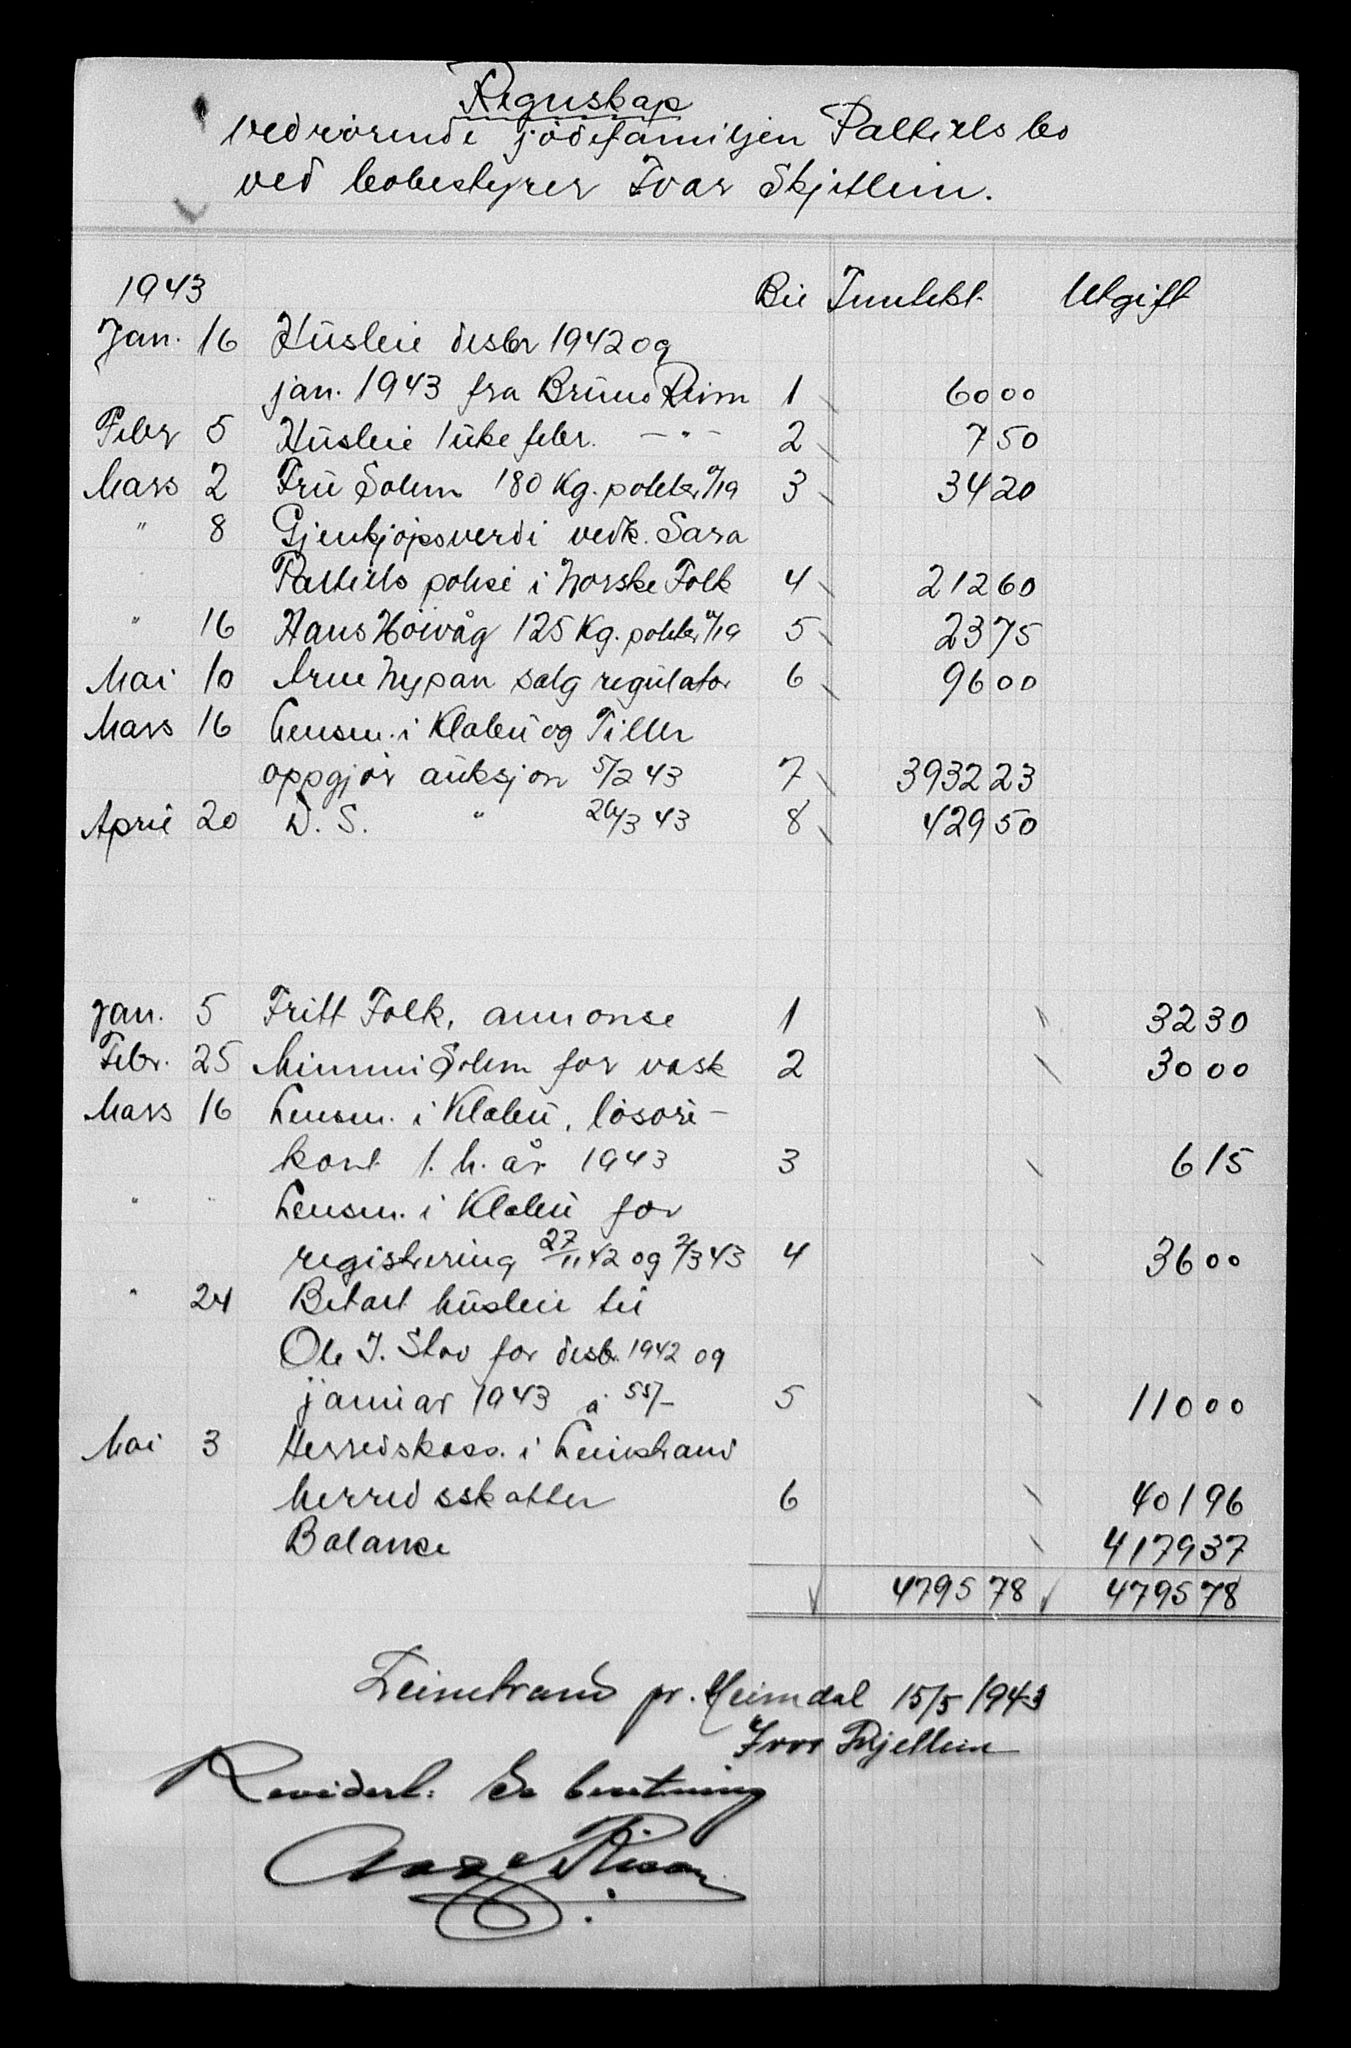 Regnskap
vedrörende jödefamiljen Paltiels bo
ved bobestyrer Ivar Skjetlein.
1943 Bil Inntekt Utgift
Jan. 16 Husleie desbr 1942 og
jan. 1943 fra Bruno Reim 1 60 00
Febr 5 Husleie 1 uke febr. — " — 2 7 50
Mars 2 Fru Solem 180 Kg. poteter á/19 3 34 20
" 8 Gjenkjöpsverdi vedk. Sara
Paltiels polise i Norske Folk 4 212 60
" 16 Hans Höivåg 125 Kg. poteter á/19 5 23 75
Mai 10 Arne Nypan salg regulator 6 96 00
Mars 16 Lensm. i Klæbu og Tiller
oppgjör auksjon 5/2 43 7 3932 23
April 20 D. S. " 26/3 43 8 429 50
Jan. 5 Fritt Folk, annonse 1 32 30
Febr. 25 Mimmi Solem for vask 2 30 00
Mars 16 Lensm. i Klæbu, lösöre-
kont 1. h. år 1943 3 6 15
" " Lensm. i Klæbu for
registrering 27/11 42 og 2/3 43 4 36 00
" 24 Betalt husleie til
Ole J. Stav for desbr. 1942 og
januar 1943 á 55/- 5 110 00
Mai 3 Herredskass. i Leinstrand
herredsskatter 6 401 96
Balanse 4179 37
4795 78 4795 78
Leinstrand pr. Heimdal 15/5 1943
Ivar Skjetlein
Revidert: Se beretning